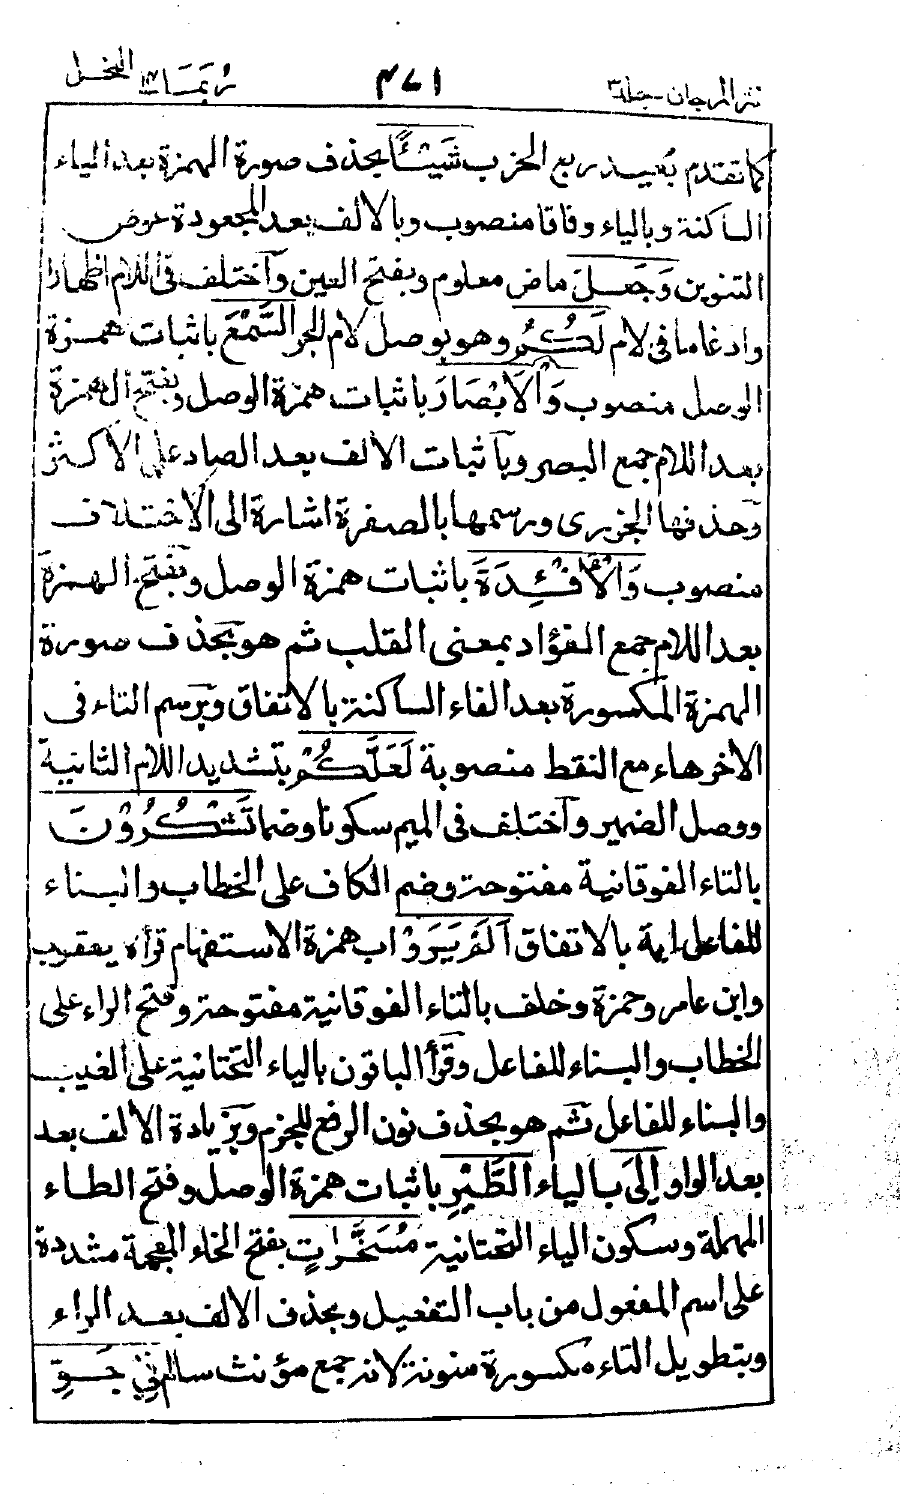 نثر المرجان جلد ٣
٤٧١
ربما ١٤
النحل
كما تقدم بعيد ربع الحزب شَيْئًا بحذف صورة الهمزة بعد الياء
الساكنة وبالياء وفاقا منصوب وبالالف بعد المجعودة عوض
التنوين وَجَعَلَ ماض معلوم وبفتح العين وآختلف فى اللام اظهارا
وادغاما فى لام لَكُمُ وهو بوصل لام الجر السَّمْعَ باثبات همزة
الوصل منصوب وَالْاَبْصَارَ باثبات همزة الوصل وبفتح الهمزة
بعد اللام جمع البصر وبآثبات الالف بعد الصاد على الاكثر
وَحذفها الجزرى ورسمها بالصفرة اشارة الى الاختلاف
منصوب وَالْاَفْئِدَةَ باثبات همزة الوصل وبفتح الهمزة
بعد اللام جمع الفؤاد بمعنى القلب ثم هو بحذف صورة
الهمزة المكسورة بعد الفاء الساكنة بالاتفاق وبرسم التاء فى
الاخر هاء مع النقط منصوبة لَعَلَّكُمْ بتشديد اللام الثانية
ووصل الضمير وآختلف فى الميم سكونا وضما تَشْكُرُوْنَ
بالتاء الفوقانية مفتوحة وضم الكاف على الخطاب والبناء
للفاعل اية بالاتفاق اَلَمْ يَرَوْا بهمزة الاستفهام قرأه يعقوب
وابن عامر وحمزة وخلف بالتاء الفوقانية مفتوحة وفتح الراء على
الخطاب والبناء للفاعل وقرأ الباقون بالياء التحتانية على الغيب
والبناء للفاعل ثم هو بحذف نون الرفع للجزم وبزيادة الالف بعد
بعد الواو اِلَى بالياء الطَّيْرِ باثبات همزة الوصل وفتح الطاء
المهملة وسكون الياء التحتانية مُسَخَّرٰتٍ بفتح الخاء المعجمة مشددة
على اسم المفعول من باب التفعيل وبحذف الالف بعد الراء
وبتطويل التاء مكسورة منونة لانه جمع مؤنث سالم فِىْ جَوِّ